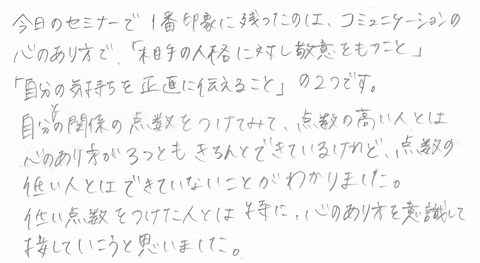 今日のセミナーで1番印象に残ったのは、コミュニケーションの
心のあり方で、「相手の人格に対し敬意をもつこと」
「自分の気持ちを正直に伝えること」の2つです。
自分との関係の点数をつけてみて、点数の高い人とは
心のあり方が3つともきちんとできているけれど、点数の
低い人とはできていないことがわかりました。
低い点数をつけた人とは特に、心のあり方を意識して
接していこうと思いました。